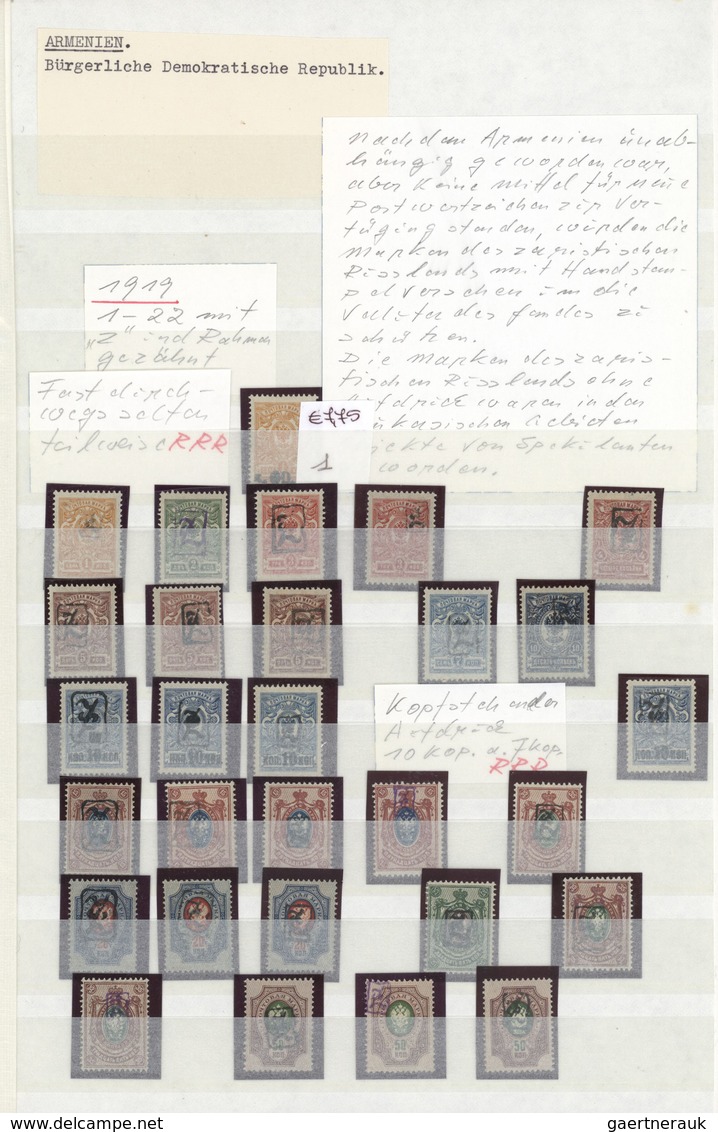 ARMENIEN.
Bürgerliche Demokratische Republik.
Nachdem Armenien ünab-
hängig geworden war,
aber keine Mittel für neüe
Postwertzeichen zür Ver-
fügüng standen, würden die
Marken des zaristischen
Rüsslands mit Handstem-
pel versehen üm die
Valüta des Landes zü
schützen.
Die Marken des zaris-
tischen Rüsslands ohne
Aüfdrück waren in den
ükasischen Gebieten
jekte von Spekülanten
worden.
1919
1-22 mit
"Z" ünd Rahmen
gezähnt
Fast dürch-
wegs selten
teilweise RRR
€ 775
1
Kopfstehender
Aüfdrück
10 Kop. a. 7 Kop.
RRR
gaertnerauk